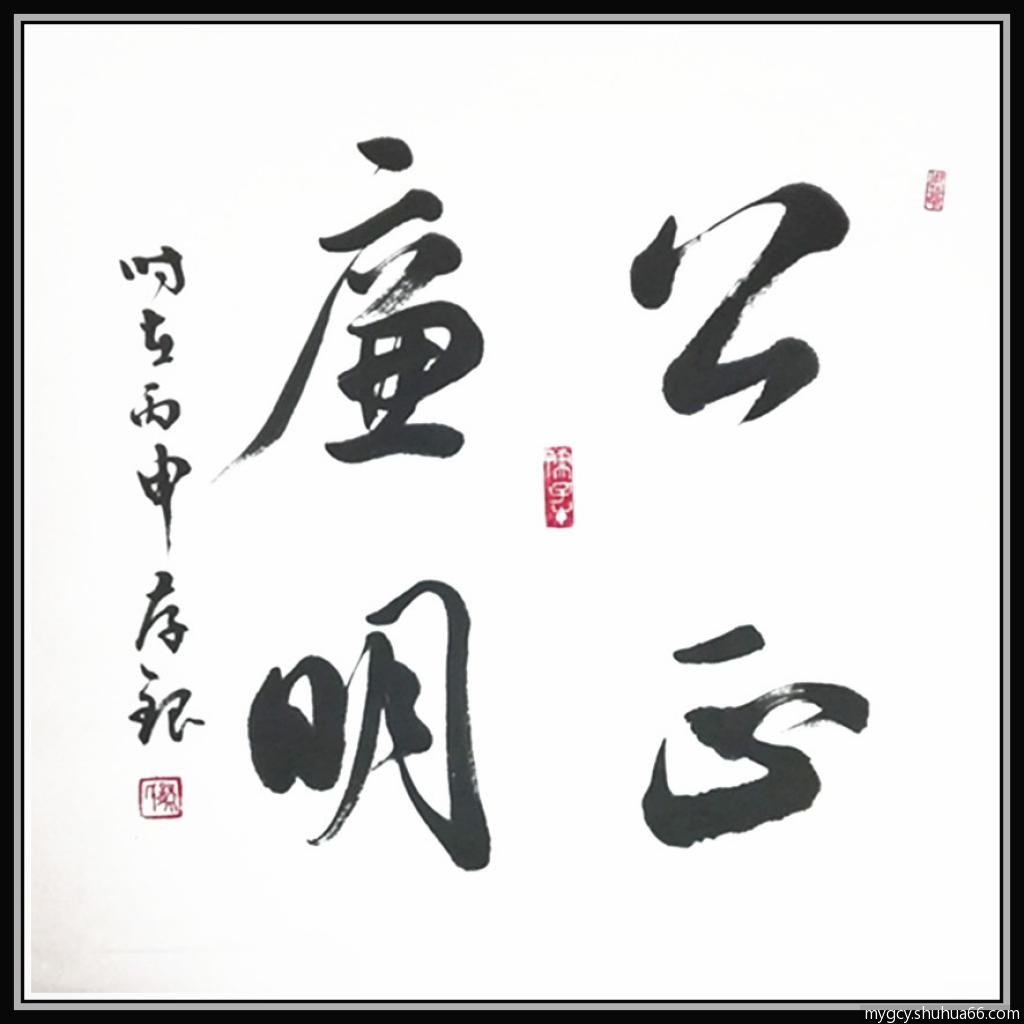 公正
廉明
时在丙申存银
mygcy.shuhua66.com